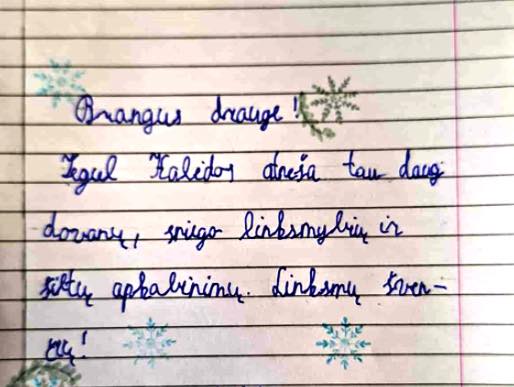 Brangus drauge!
Tegul Kalėdos atneša tau daug
dovanų, sniego linksmybių ir
šiltų apkabinimų. Linksmų šven-
čių!